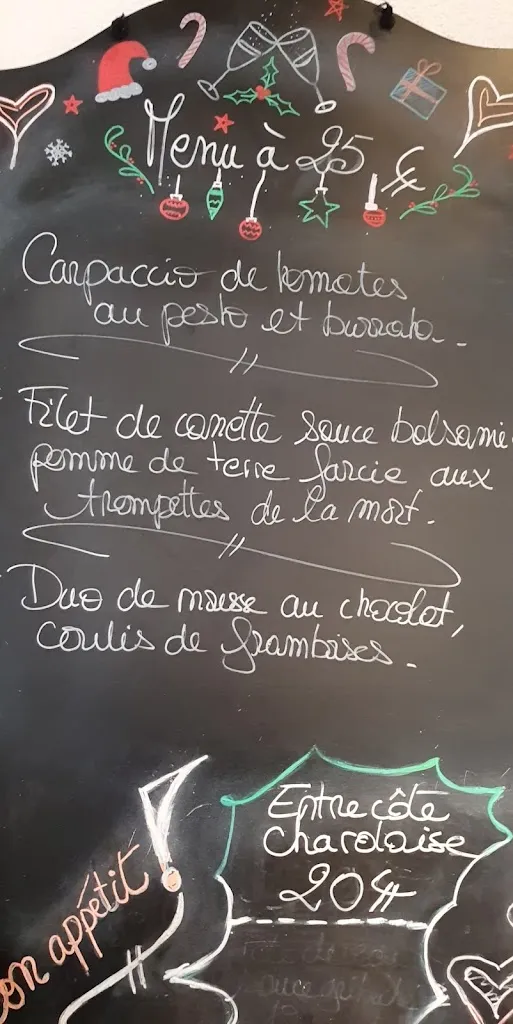 Menu à 25 €
Carpaccio de tomates
au pesto et burrata...
Filet de canette sauce balsami
pomme de terre farcie aux
trompettes de la mort.
Duo de mousse au chocolat,
coulis de framboises.
Entrecôte
charolaise
20€
on appétit